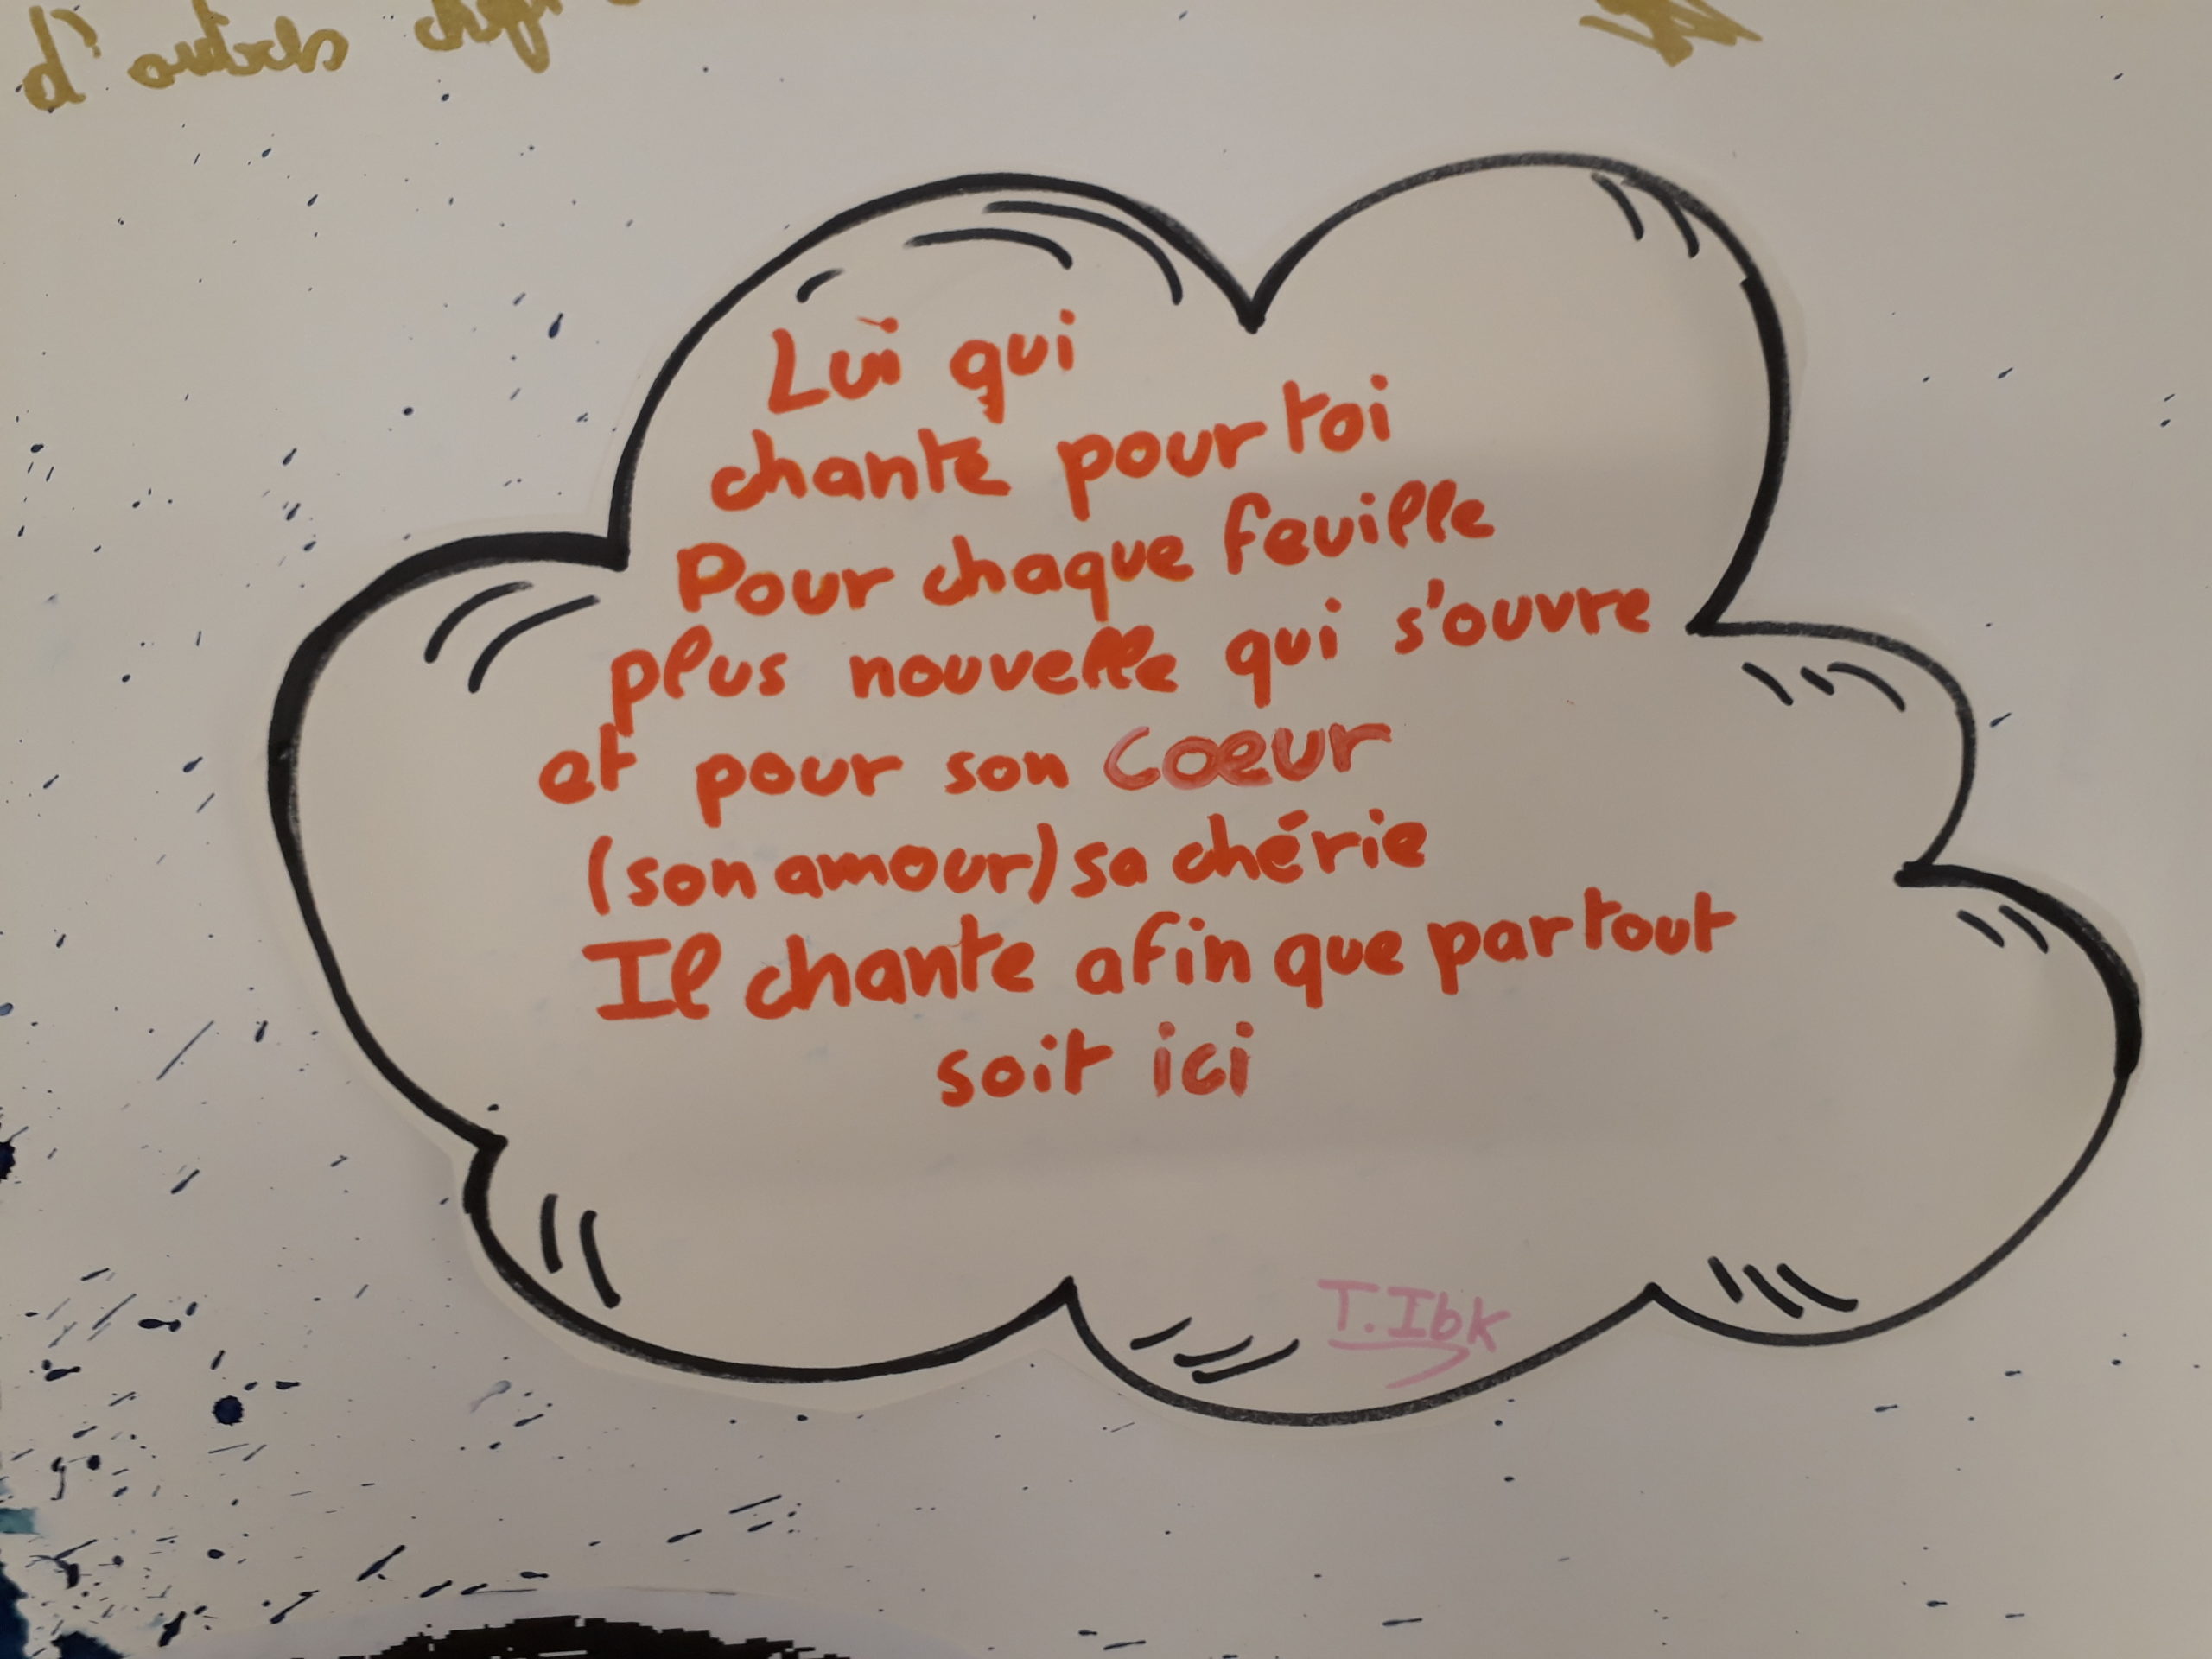 Lui qui
chante pour toi
Pour chaque feuille
plus nouvelle qui s'ouvre
et pour son coeur
(son amour) sa chérie
Il chante afin que partout
soit ici
T. Ibk